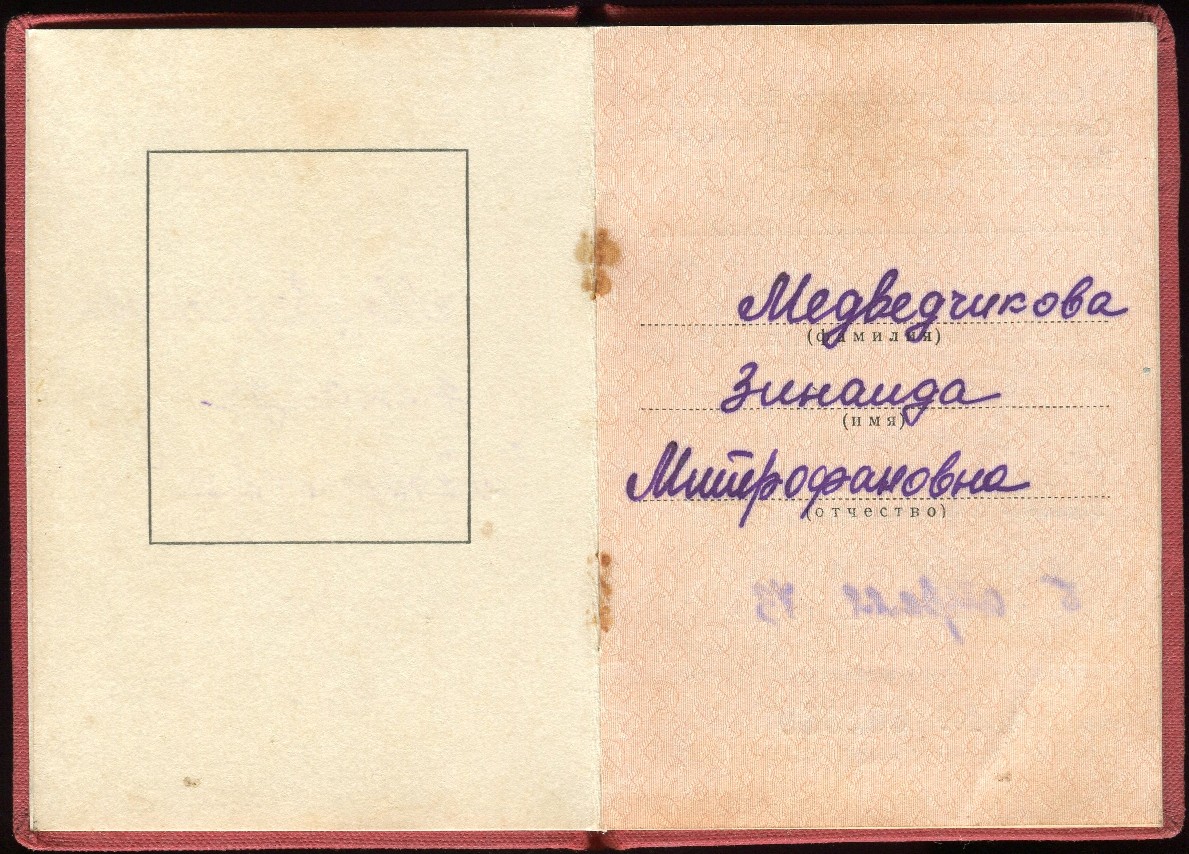 Медведчикова
(фамилия)
Зинаида
(имя)
Митрофановна
(отчество)
5 апреля 73